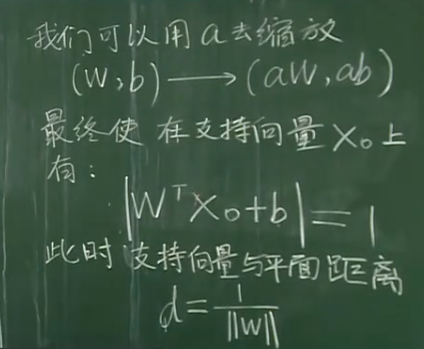 我们可以用a去缩放
(W,b)⟶(aW,ab)
最终使 在支持向量X₀上
有:
|WᵀX₀+b|=1
此时 支持向量与平面距离
d=1/‖W‖